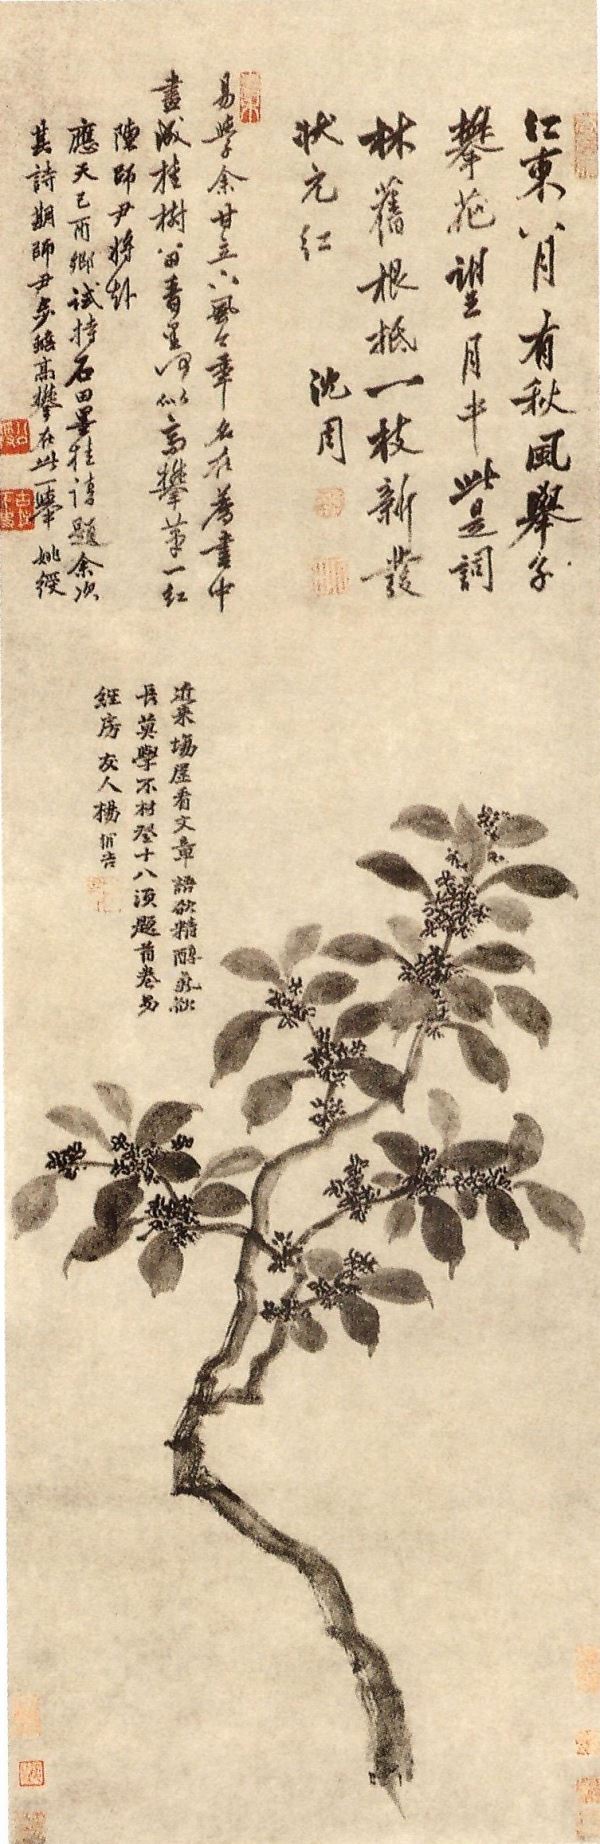 江東八月有秋風舉子
攀花望月中此是詞
林舊根柢一枝新發
狀元紅
沈周
易學余廿立下風今年名在薦書中
畫成桂樹留青眼何似高攀第一紅
陳師尹將赴
應天己酉鄉試持石田墨桂請題余次
其詩期師尹步蟾高攀在此一舉 姚綬
近來場屋看文章語欲精醇氣欲
長莫學不材登十八須題首卷易
經房 友人楊循吉